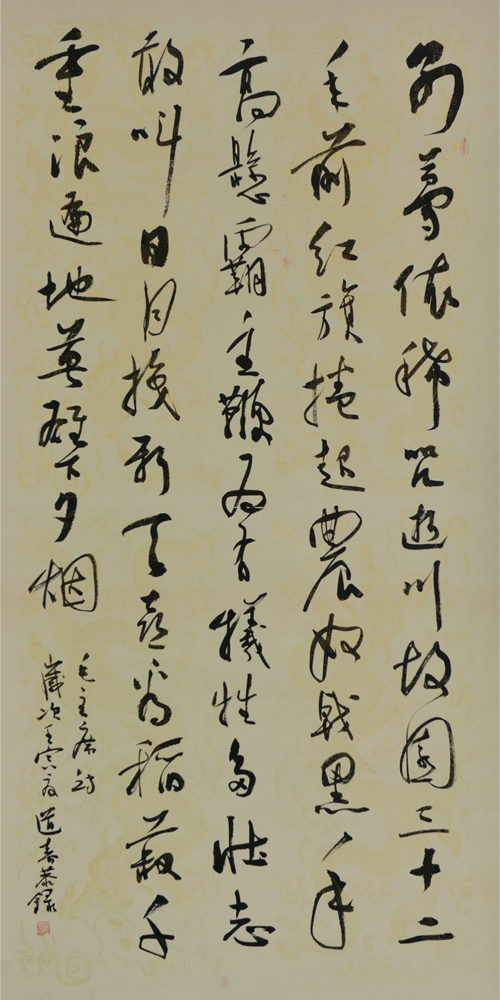 别夢依稀咒逝川故園三十二
年前红旗捲起農奴戟黑手
高懸霸主鞭为有犧牲多壮志
敢叫日月换新天喜看稻菽千
重浪遍地英雄下夕烟
毛主席诗
歲次壬寅夏道喜恭録